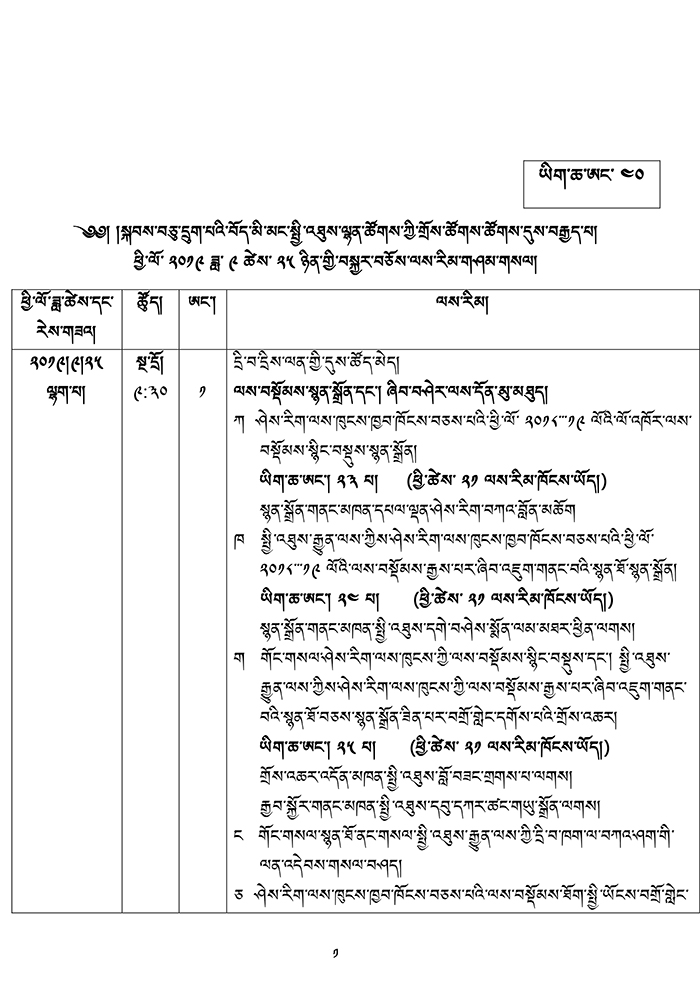 ཡིག་ཆ་ཨང་ ༤༠
༄༅། །སྐབས་བཅུ་དྲུག་པའི་བོད་མི་མང་སྤྱི་འཐུས་ལྷན་ཚོགས་ཀྱི་གྲོས་ཚོགས་ཚོགས་དུས་བརྒྱད་པ།
ཕྱི་ལོ་ ༢༠༡༩ ཟླ་ ༩ ཚེས་ ༢༥ ཉིན་གྱི་བསྐྱར་བཅོས་ལས་རིམ་གཤམ་གསལ།
ཕྱི་ལོ་ཟླ་ཚེས་དང་ ཚོུད། ཨང་། ལས་རིམ།
རེས་གཟའ།
༢༠༡༩།༩།༢༥ སྔ་དྲོ། དྲི་བ་དྲིས་ལན་གྱི་དུས་ཚོད་མེད།
ལྷག་པ། ༩:༣༠ ༡ ལས་བསྡོམས་སྙན་སྒྲོན་དང་། ཞིབ་བཤེར་ལས་དོན་མུ་མཐུད།
ཀ ཤེས་རིག་ལས་ཁུངས་ཁྱབ་ཁོངས་བཅས་པའི་ཕྱི་ལོ་ ༢༠༡༨–༡༩ ལོའི་ལོ་འཁོར་ལས་
བསྡོམས་སྙིང་བསྡུས་སྙན་སྒྲོན།
ཡིག་ཆ་ཨང་། ༢༣ པ། (ཕྱི་ཚེས་ ༢༡ ལས་རིམ་ཁོངས་ཡོད།)
སྙན་སྒྲོན་གནང་མཁན་དཔལ་ལྡན་ཤེས་རིག་བཀའ་བློན་མཆོག
ཁ སྤྱི་འཐུས་རྒྱུན་ལས་ཀྱིས་ཤེས་རིག་ལས་ཁུངས་ཁྱབ་ཁོངས་བཅས་པའི་ཕྱི་ལོ་
༢༠༡༨–༡༩ ལོའི་ལས་བསྡོམས་རྒྱས་པར་ཞིབ་འཇུག་གནང་བའི་སྙན་ཐོ་སྙན་སྒྲོན།
ཡིག་ཆ་ཨང་། ༢༤ པ། (ཕྱི་ཚེས་ ༢༡ ལས་རིམ་ཁོངས་ཡོད།)
སྙན་སྒྲོན་གནང་མཁན་སྤྱི་འཐུས་དགེ་བཤེས་སྨོན་ལམ་མཐར་ཕྱིན་ལགས།
ག གོང་གསལ་ཤེས་རིག་ལས་ཁུངས་ཀྱི་ལས་བསྡོམས་སྙིང་བསྡུས་དང་། སྤྱི་འཐུས་
རྒྱུན་ལས་ཀྱིས་ཤེས་རིག་ལས་ཁུངས་ཀྱི་ལས་བསྡོམས་རྒྱས་པར་ཞིབ་འཇུག་གནང་
བའི་སྙན་ཐོ་བཅས་སྙན་སྒྲོན་ཟིན་པར་བགྲོ་གླེང་དགོས་པའི་གྲོས་འཆར།
ཡིག་ཆ་ཨང་། ༢༥ པ། (ཕྱི་ཚེས་ ༢༡ ལས་རིམ་ཁོངས་ཡོད།)
གྲོས་འཆར་འདོན་མཁན་སྤྱི་འཐུས་བློ་བཟང་གྲགས་པ་ལགས།
རྒྱབ་སྐྱོར་གནང་མཁན་སྤྱི་འཐུས་དབུ་དཀར་ཚང་གཡུ་སྒྲོན་ལགས།
ང གོང་གསལ་སྙན་ཐོ་ནང་གསལ་སྤྱི་འཐུས་རྒྱུན་ལས་ཀྱི་དྲི་བ་ཁག་ལ་བཀའ་ཤག་གི་
ལན་འདེབས་གསལ་བཤད།
ཅ ཤེས་རིག་ལས་ཁུངས་ཁྱབ་ཁོངས་བཅས་པའི་ལས་བསྡོམས་ཐོག་སྤྱི་ཡོངས་བགྲོ་གླེང་
༡